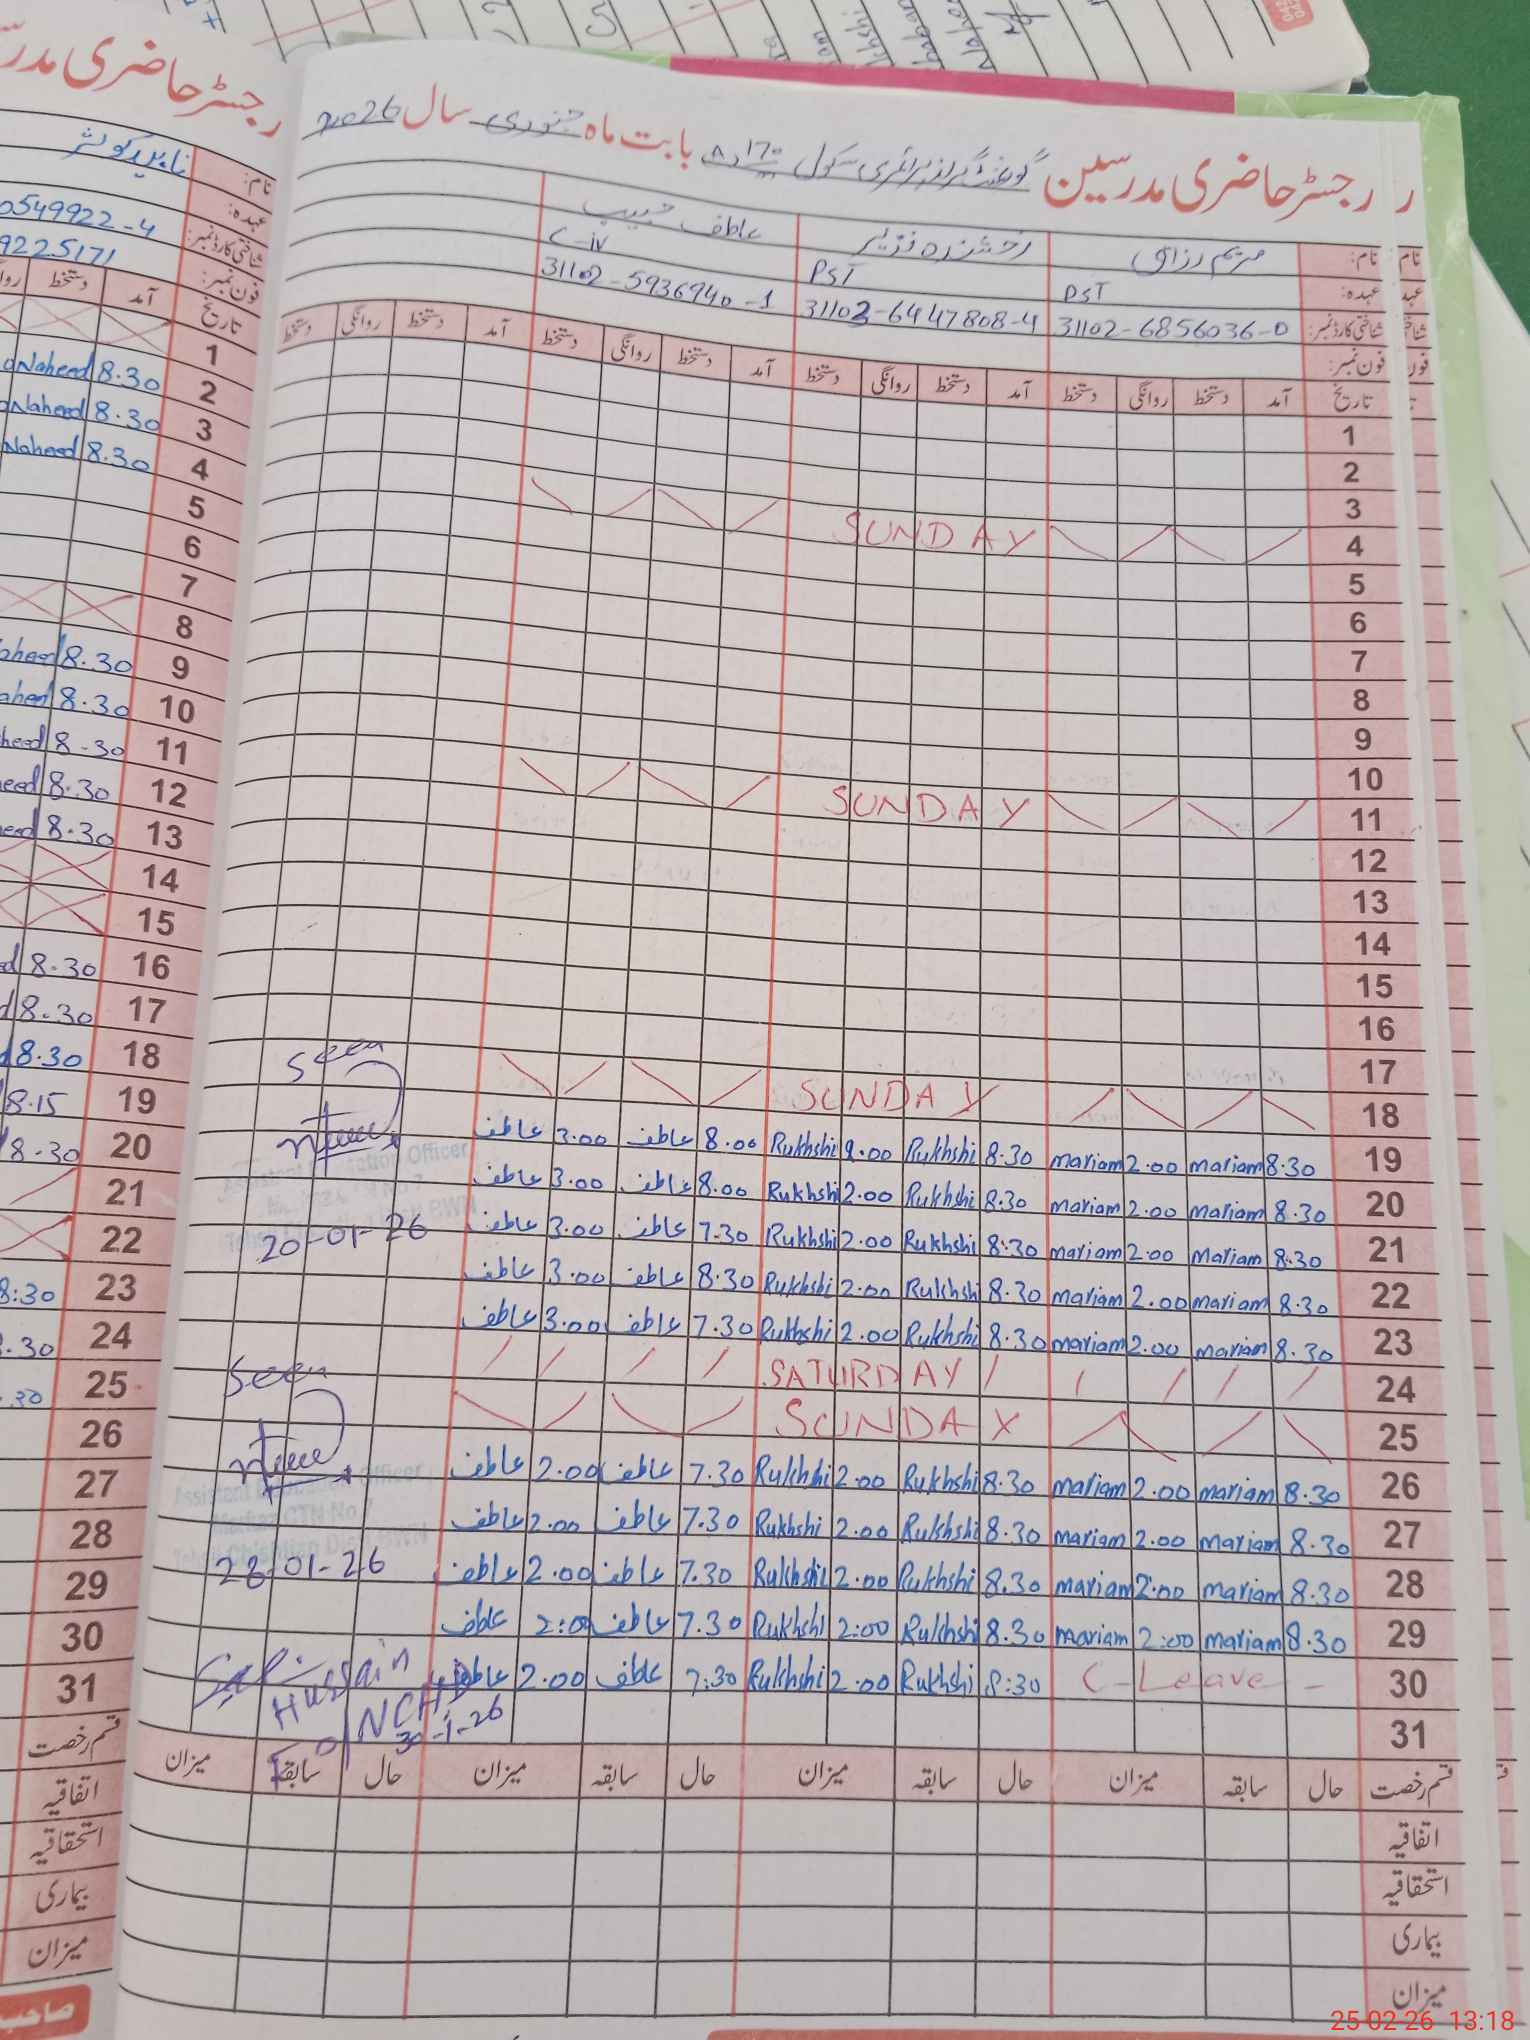 رجسٹر حاضری مدرسین گورنمنٹ گرلز پرائمری سکول 170 بابت ماہ جنوری سال 2026
نام: مریم رزاق رخشندہ نذیر عاطف حبیب
عہدہ: PST PST C-iv
شناختی کارڈ نمبر: 31102-6856036-0 31102-6447808-4 31102-5936940-1
فون نمبر:
تاریخ آمد دستخط روانگی دستخط آمد دستخط روانگی دستخط آمد دستخط روانگی دستخط آمد دستخط روانگی دستخط
1
2
3
4 SUNDAY
5
6
7
8
9
10
11 SUNDAY
12
13
14
15
16
17
18 SUNDAY
19 8.30 mariam 2.00 mariam 8.30 Rukhshi 2.00 Rukhshi 8.00 عاطف 3.00 عاطف
20 8.30 mariam 2.00 mariam 8.30 Rukhshi 2.00 Rukhshi 8.00 عاطف 3.00 عاطف
21 8:30 mariam 2.00 mariam 8:30 Rukhshi 2.00 Rukhshi 7.30 عاطف 3.00 عاطف
22 8.30 mariam 2.00 mariam 8.30 Rukhshi 2.00 Rukhshi 8.30 عاطف 3.00 عاطف
23 8.30 mariam 2.00 mariam 8.30 Rukhshi 2.00 Rukhshi 7.30 عاطف 3.00 عاطف
24 SATURDAY
25 SUNDAY
26 8.30 mariam 2.00 mariam 8.30 Rukhshi 2.00 Rukhshi 7.30 عاطف 2.00 عاطف
27 8.30 mariam 2.00 mariam 8.30 Rukhshi 2.00 Rukhshi 7.30 عاطف 2.00 عاطف
28 8.30 mariam 2.00 mariam 8.30 Rukhshi 2.00 Rukhshi 7.30 عاطف 2.00 عاطف
29 8.30 mariam 2:00 mariam 8.30 Rukhshi 2:00 Rukhshi 7.30 عاطف 2:00 عاطف
30 C-Leave - 8:30 Rukhshi 2.00 Rukhshi 7:30 عاطف 2.00 عاطف
31
قسم رخصت حال سابقہ میزان حال سابقہ میزان حال سابقہ میزان حال سابقہ میزان
اتفاقیہ
استحقاقیہ
بیماری
میزان
Seen
Assistant Education Officer
20-01-26
Seen
Assistant Education Officer
Markaz CTN No.7
Tehsil Chishtian Distt BWN
28-01-26
Hussain
NCHD
30-1-26
رجسٹر حاضری مدر
نام: ناہید کوثر
عہدہ:
شناختی کارڈ نمبر: 0549922-4
فون نمبر: 9225171
تاریخ آمد دستخط
1
2 8.30 Naheed
3 8.30 Naheed
4 8.30 Naheed
5
6
7
8
9 8.30 aheed
10 8.30 aheed
11 8-30 heed
12 8.30 eed
13 8.30 eed
14
15
16 8.30 d
17 8.30 d
18 8.30
19 8.15
20 8-30
21
22
23 8:30
24 .30
25 .30
26
27
28
29
30
31
قسم رخصت
اتفاقیہ
استحقاقیہ
بیماری
میزان
صاحب
25 02 26 13:18